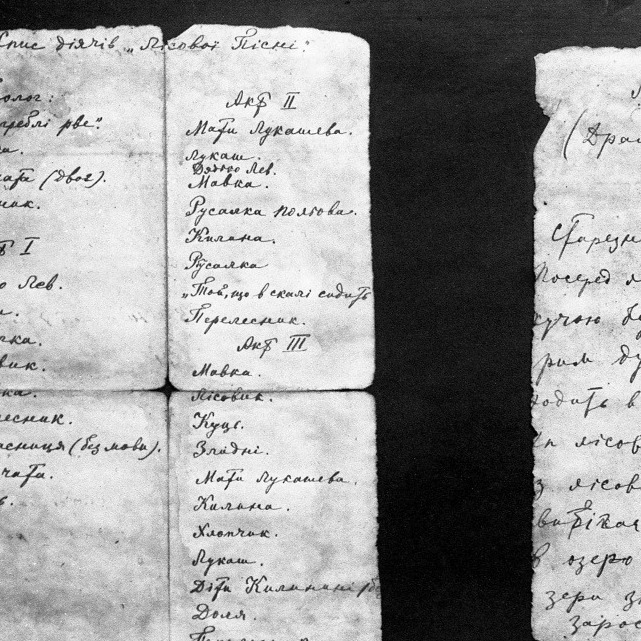 Спис діячів „Лісової Пісні".
олог:
греблі рве".
ка.
чата (двоє).
ник.
Акт I
о Лев.
ка.
вик.
ка.
лесник.
асниця (без мови).
чата.
Акт II
Мати Лукашева.
Лукаш.
Дядько Лев.
Мавка.
Русалка польова.
Килина.
Русалка
„Той, що в скалі сидить
Перелесник.
Акт III
Мавка.
Лісовик.
Куць.
Злидні.
Мати Лукашева.
Килина.
Хлопчик.
Лукаш.
Діти Килинині
Доля.
(Дра
Старезн
Посеред л
рим ду
ходить в
лісов
з лісов
в озеро
зера з
зарос